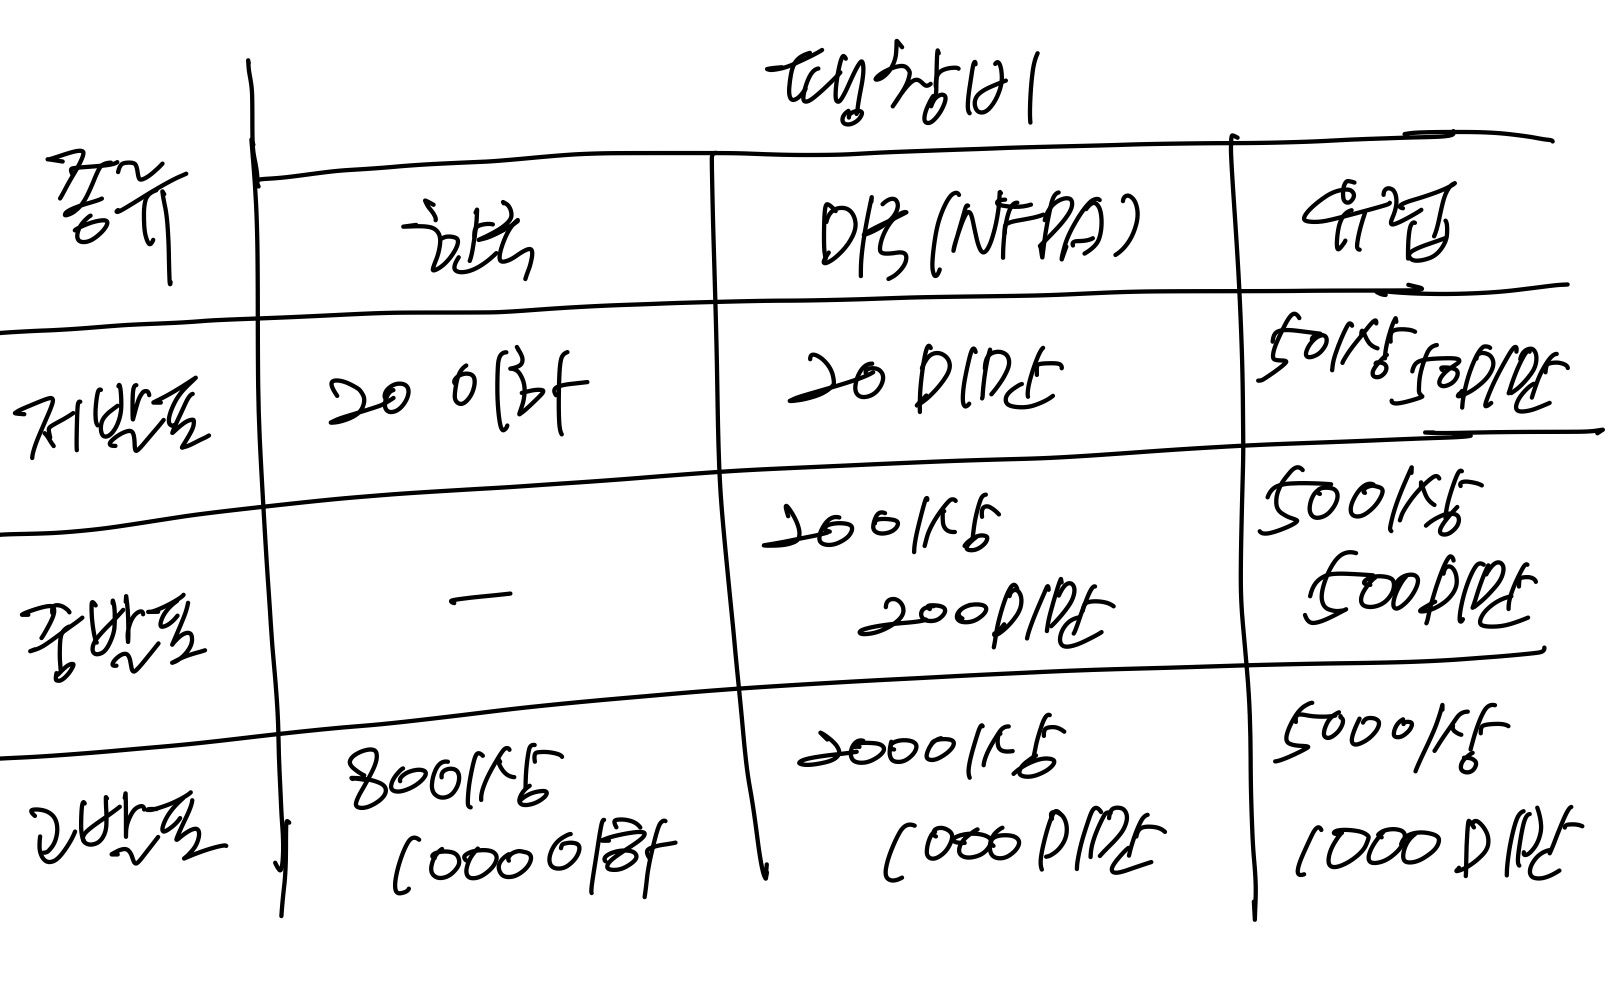 팽창비
종류
한국
미국(NFPA)
유럽
저발포
20 이하
20 미만
50이상 50미만
중발포
-
200이상
200미만
500이상
500미만
고발포
800이상
1000 이하
2000이상
1000미만
5000이상
1000미만